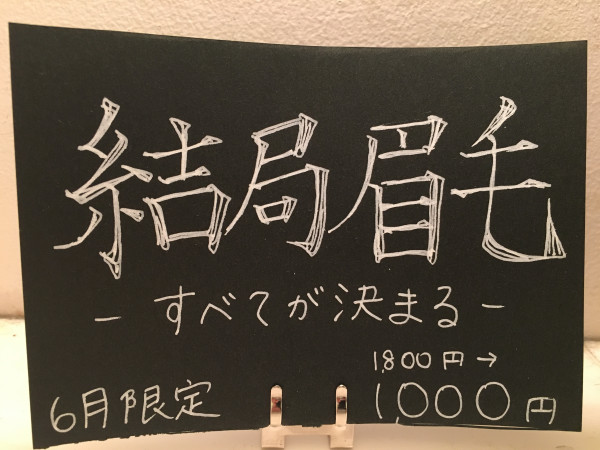 結局眉毛
- すべてが決まる -
1,800円→
6月限定 1,000円